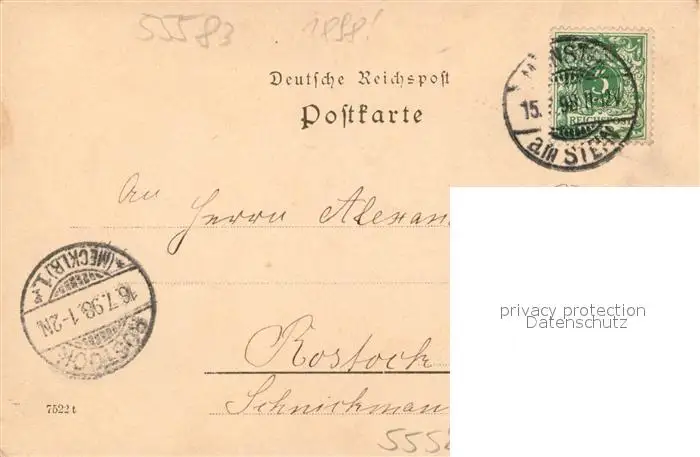 55583 1898!
Deutsche Reichspost
Postkarte
MÜNSTER
15. 98. 11-12V
am STEIN
REICHSPOST
An
Herrn Alexan
privacy protection
Datenschutz
(MECKLB) 1.
16.7.98.1-2N.
ROSTOCK
Rostock
Schnickman
7522 t
555